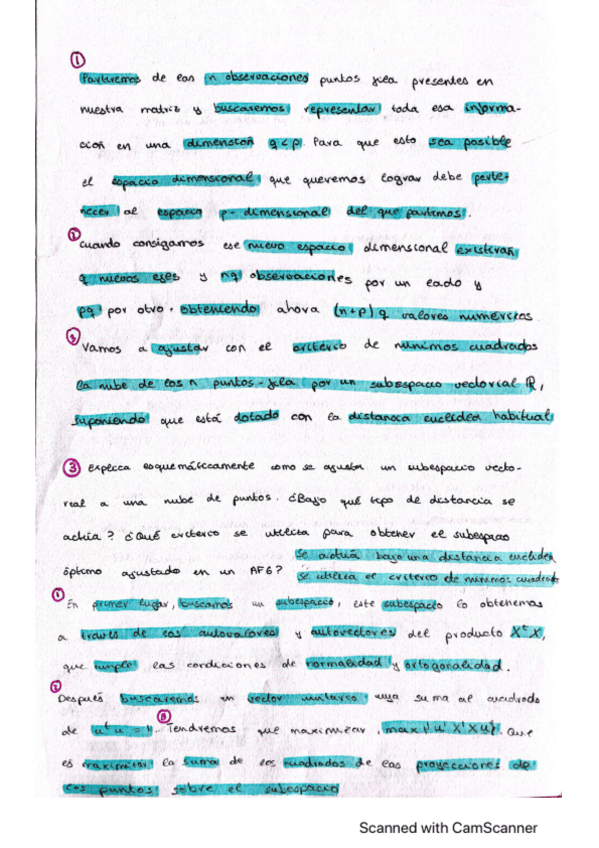 ①
Partiremos de las n observaciones puntos fila presentes en
nuestra matriz y buscaremos representar toda esa informa-
ción en una dimensión q<p. Para que esto sea posible
el espacio dimensional que queremos lograr debe perte-
necer al espacio p-dimensional del que partimos.
②
Cuando consigamos ese nuevo espacio dimensional existirán
q nuevos ejes y nq observaciones por un lado y
pq por otro. obteniendo ahora (n+p)q valores numéricos.
③
Vamos a ajustar con el criterio de minimos cuadrados
la nube de los n puntos-fila por un subespacio vectorial R,
suponiendo que está dotado con la distancia euclidea habitual
③ Explica esquemáticamente como se ajusta un subespacio vecto-
rial a una nube de puntos. ¿Bajo qué tipo de distancia se
actúa? ¿Qué criterio se utiliza para obtener el subespacio
se actúa bajo una distancia euclidea
óptimo ajustado en un AFG? se utiliza el criterio de minimos cuadrado
①
En primer lugar, buscamos un subespacio, este subespacio lo obtenemos
a través de los autovalores y autovectores del producto XᵗX,
que cumple las condiciones de normalidad y ortogonalidad.
②
Después buscaremos un vector unitario suma al cuadrado
③
de uᵗu = 1. Tendremos que maximizar, max{u'X'Xu}. Que
es maximizar la suma de los cuadrados de las proyecciones de
los puntos sobre el subespacio
Scanned with CamScanner